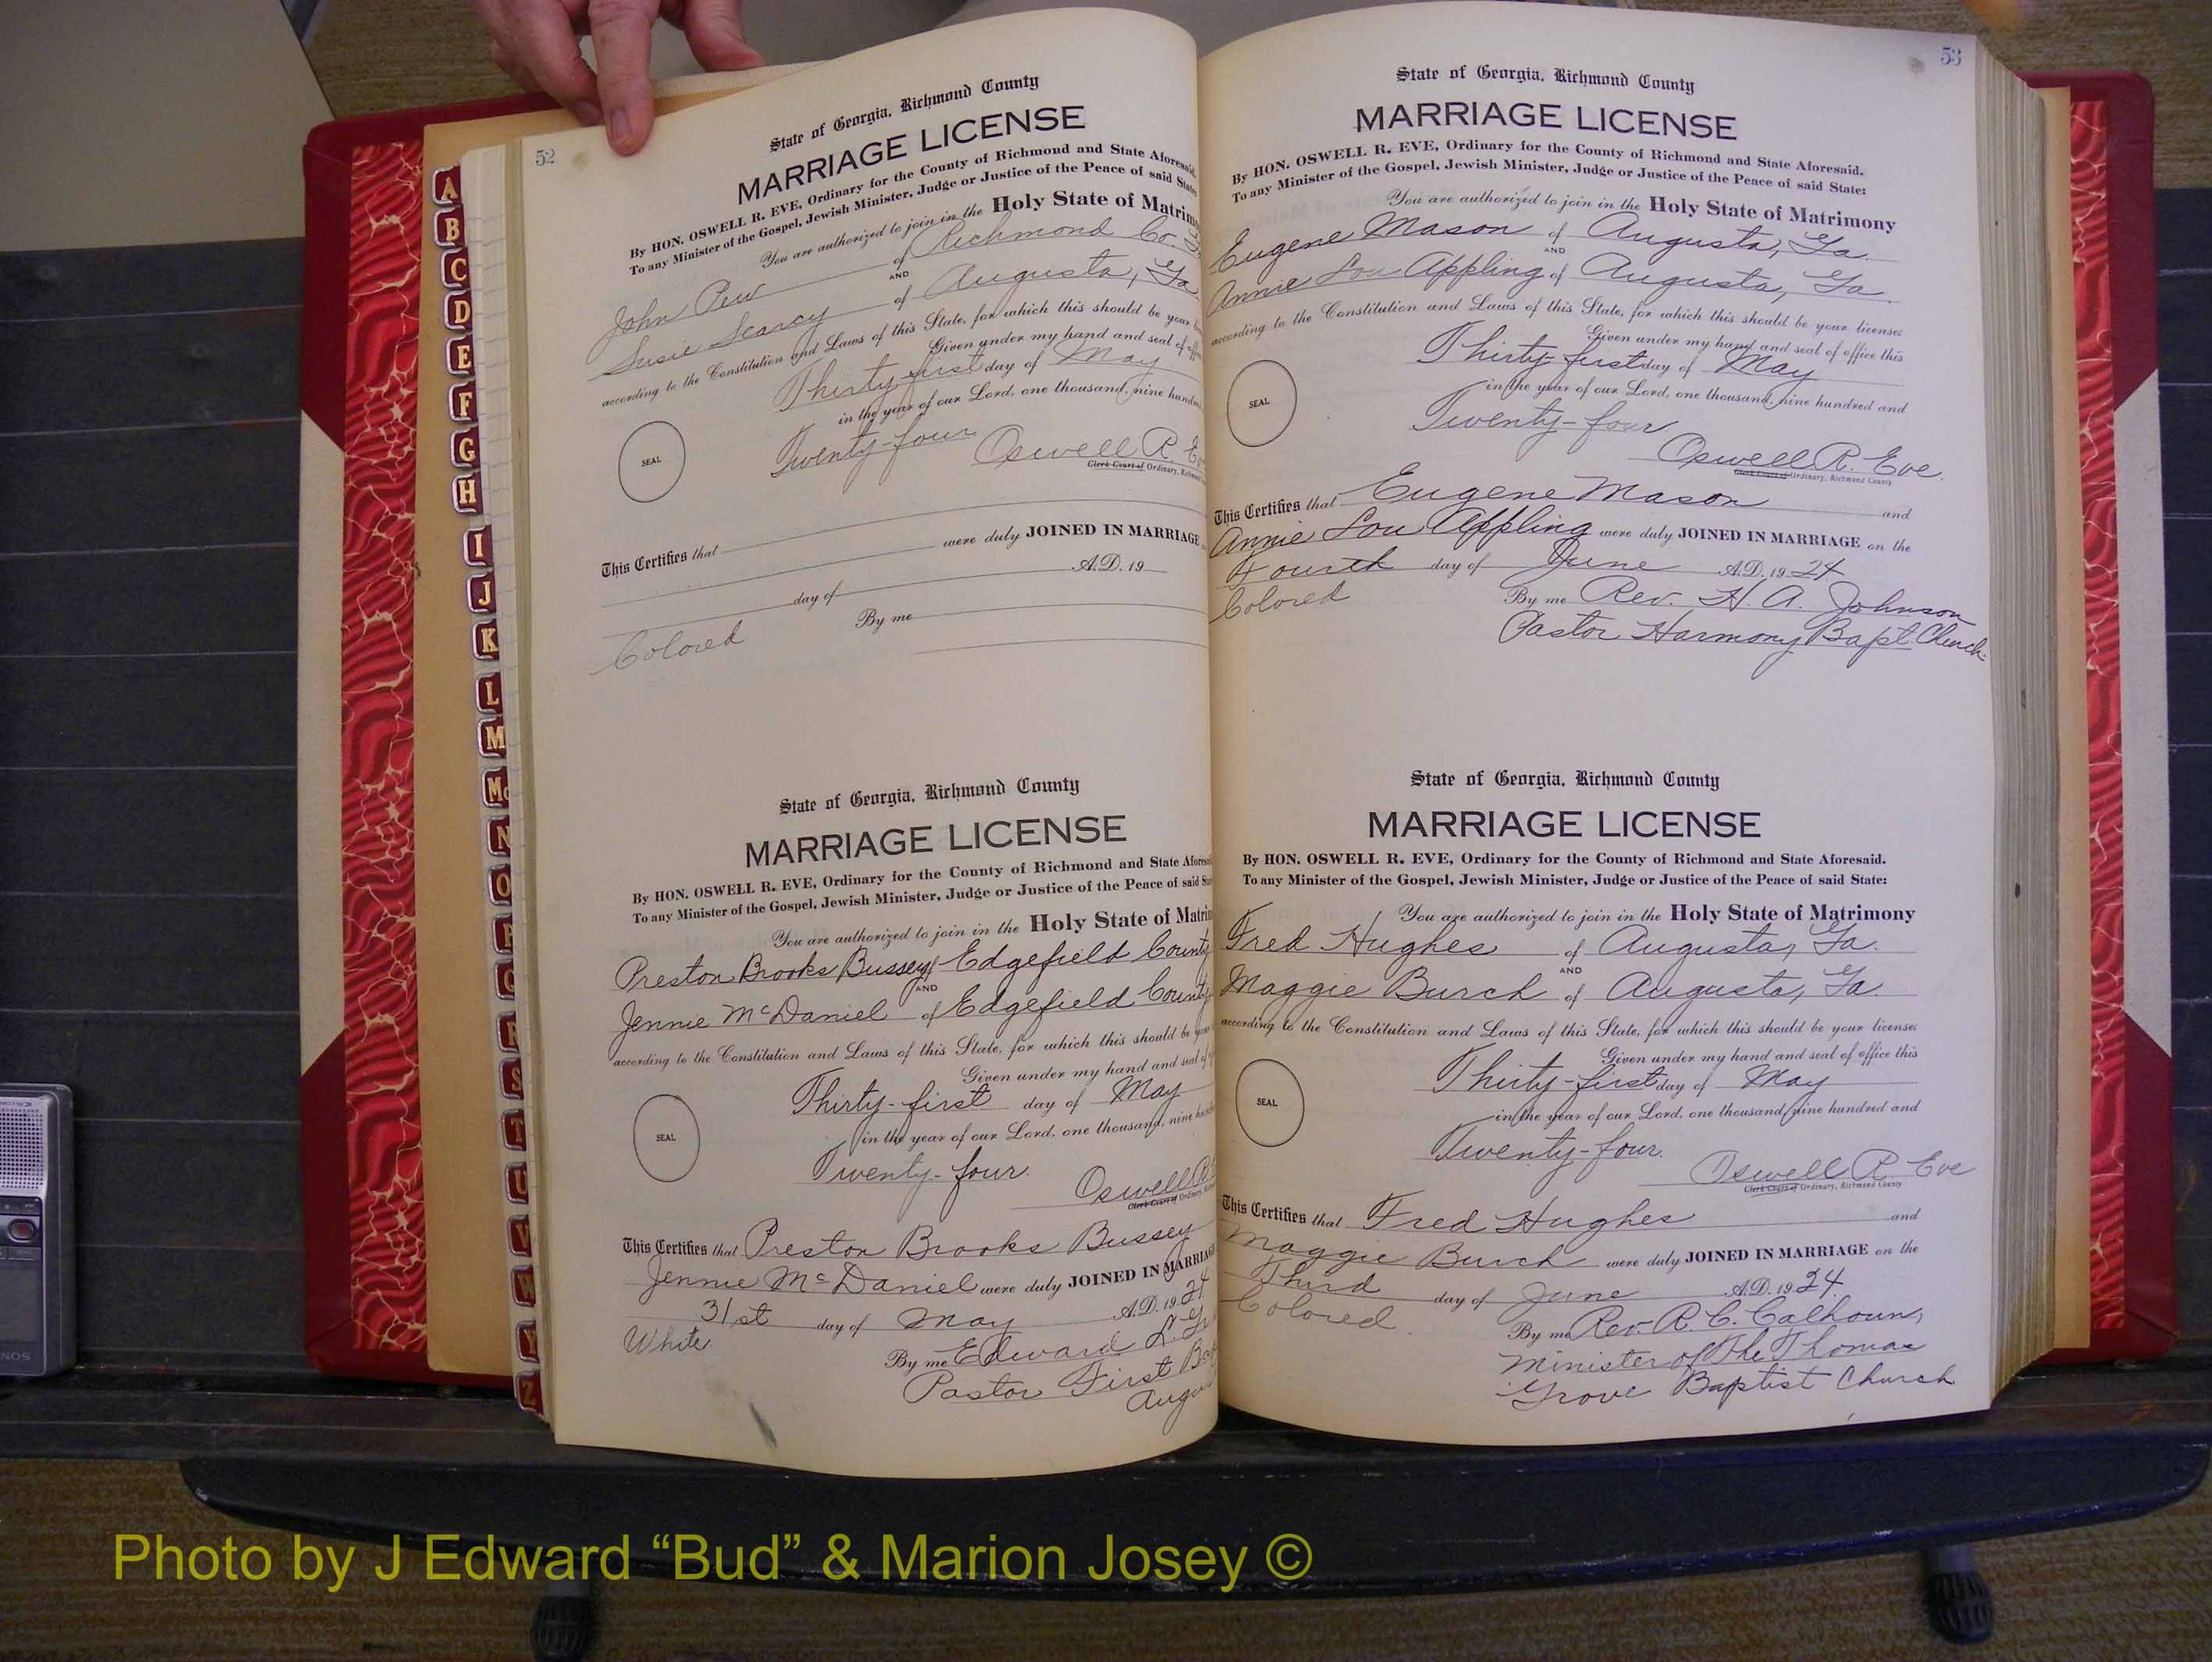 52
State of Georgia, Richmond County
MARRIAGE LICENSE
By HON. OSWELL R. EVE, Ordinary for the County of Richmond and State Aforesaid.
To any Minister of the Gospel, Jewish Minister, Judge or Justice of the Peace of said State
You are authorized to join in the Holy State of Matrim
John Pew of Richmond Co.
AND
Susie Searcy of Augusta, Ga
according to the Constitution and Laws of this State, for which this should be your
Given under my hand and seal of
Thirty-first day of May
in the year of our Lord, one thousand, nine hundre
Twenty-four
SEAL
Oswell R. Ev
Clerk Court of Ordinary, Richmond
This Certifies that
were duly JOINED IN MARRIAGE
day of A.D. 19
By me
Colored
State of Georgia, Richmond County
MARRIAGE LICENSE
By HON. OSWELL R. EVE, Ordinary for the County of Richmond and State Afores
To any Minister of the Gospel, Jewish Minister, Judge or Justice of the Peace of said
You are authorized to join in the Holy State of Matri
Preston Brooks Bussey of Edgefield County
AND
Jennie McDaniel of Edgefield County
according to the Constitution and Laws of this State, for which this should be
Given under my hand and seal of
Thirty-first day of May
in the year of our Lord, one thousand, nine
Twenty-four.
SEAL
Oswell R
Clerk Court of Ordinary,
This Certifies that Preston Brooks Bussey
Jennie McDaniel were duly JOINED IN MARRIAGE
31st day of May A.D. 1924
White
By me Edward L.
Pastor First
53
State of Georgia, Richmond County
MARRIAGE LICENSE
By HON. OSWELL R. EVE, Ordinary for the County of Richmond and State Aforesaid.
To any Minister of the Gospel, Jewish Minister, Judge or Justice of the Peace of said State:
You are authorized to join in the Holy State of Matrimony
Eugene Mason of Augusta, Ga.
AND
Annie Lou Appling of Augusta, Ga.
according to the Constitution and Laws of this State, for which this should be your license:
Given under my hand and seal of office this
Thirty-first day of May
in the year of our Lord, one thousand, nine hundred and
Twenty-four
SEAL
Oswell R. Eve
Clerk Court of Ordinary, Richmond County
This Certifies that Eugene Mason and
Annie Lou Appling were duly JOINED IN MARRIAGE on the
Fourth day of June A.D. 1924
Colored
By me Rev. H. A. Johnson
Pastor Harmony Bapt. Church
State of Georgia, Richmond County
MARRIAGE LICENSE
By HON. OSWELL R. EVE, Ordinary for the County of Richmond and State Aforesaid.
To any Minister of the Gospel, Jewish Minister, Judge or Justice of the Peace of said State:
You are authorized to join in the Holy State of Matrimony
Fred Hughes of Augusta, Ga.
AND
Maggie Burch of Augusta, Ga.
according to the Constitution and Laws of this State, for which this should be your license:
Given under my hand and seal of office this
Thirty-first day of May
in the year of our Lord, one thousand, nine hundred and
Twenty-four.
SEAL
Oswell R. Eve
Clerk Court of Ordinary, Richmond County
This Certifies that Fred Hughes and
Maggie Burch were duly JOINED IN MARRIAGE on the
Third day of June A.D. 1924.
Colored.
By me Rev. R. C. Calhoun,
Minister of The Thomas
Grove Baptist Church
A
B
C
D
E
F
G
H
I
J
K
L
M
Mc
N
O
P
Q
R
S
T
U
V
W
Y
Z
Photo by J Edward “Bud” & Marion Josey ©